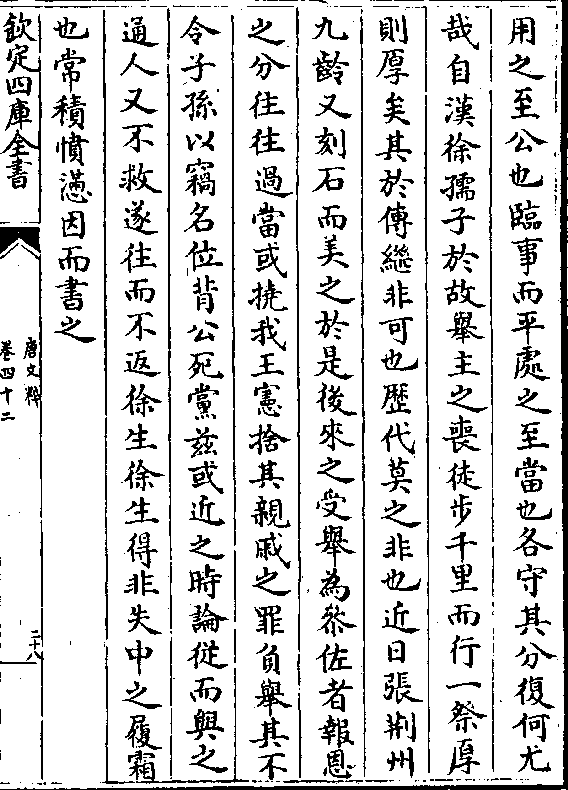 用之至公也臨事而平處之至當也各守其分復何尤
哉自漢徐孺子於故舉主之喪徒步千里而行一祭厚
則厚矣其於傳繼非可也歴代莫之非也近日張荆州
九齡又刻石而美之於是後來之受舉為叅佐者報恩
之分往往過當或撓我王憲捨其親戚之罪負舉其不
令子孫以竊名位背公死黨兹或近之時論從而與之
通人又不救遂往而不返徐生徐生得非失中之履霜
也常積憤懣因而書之
欽定四庫全書
唐文粹
卷四十二
二十八